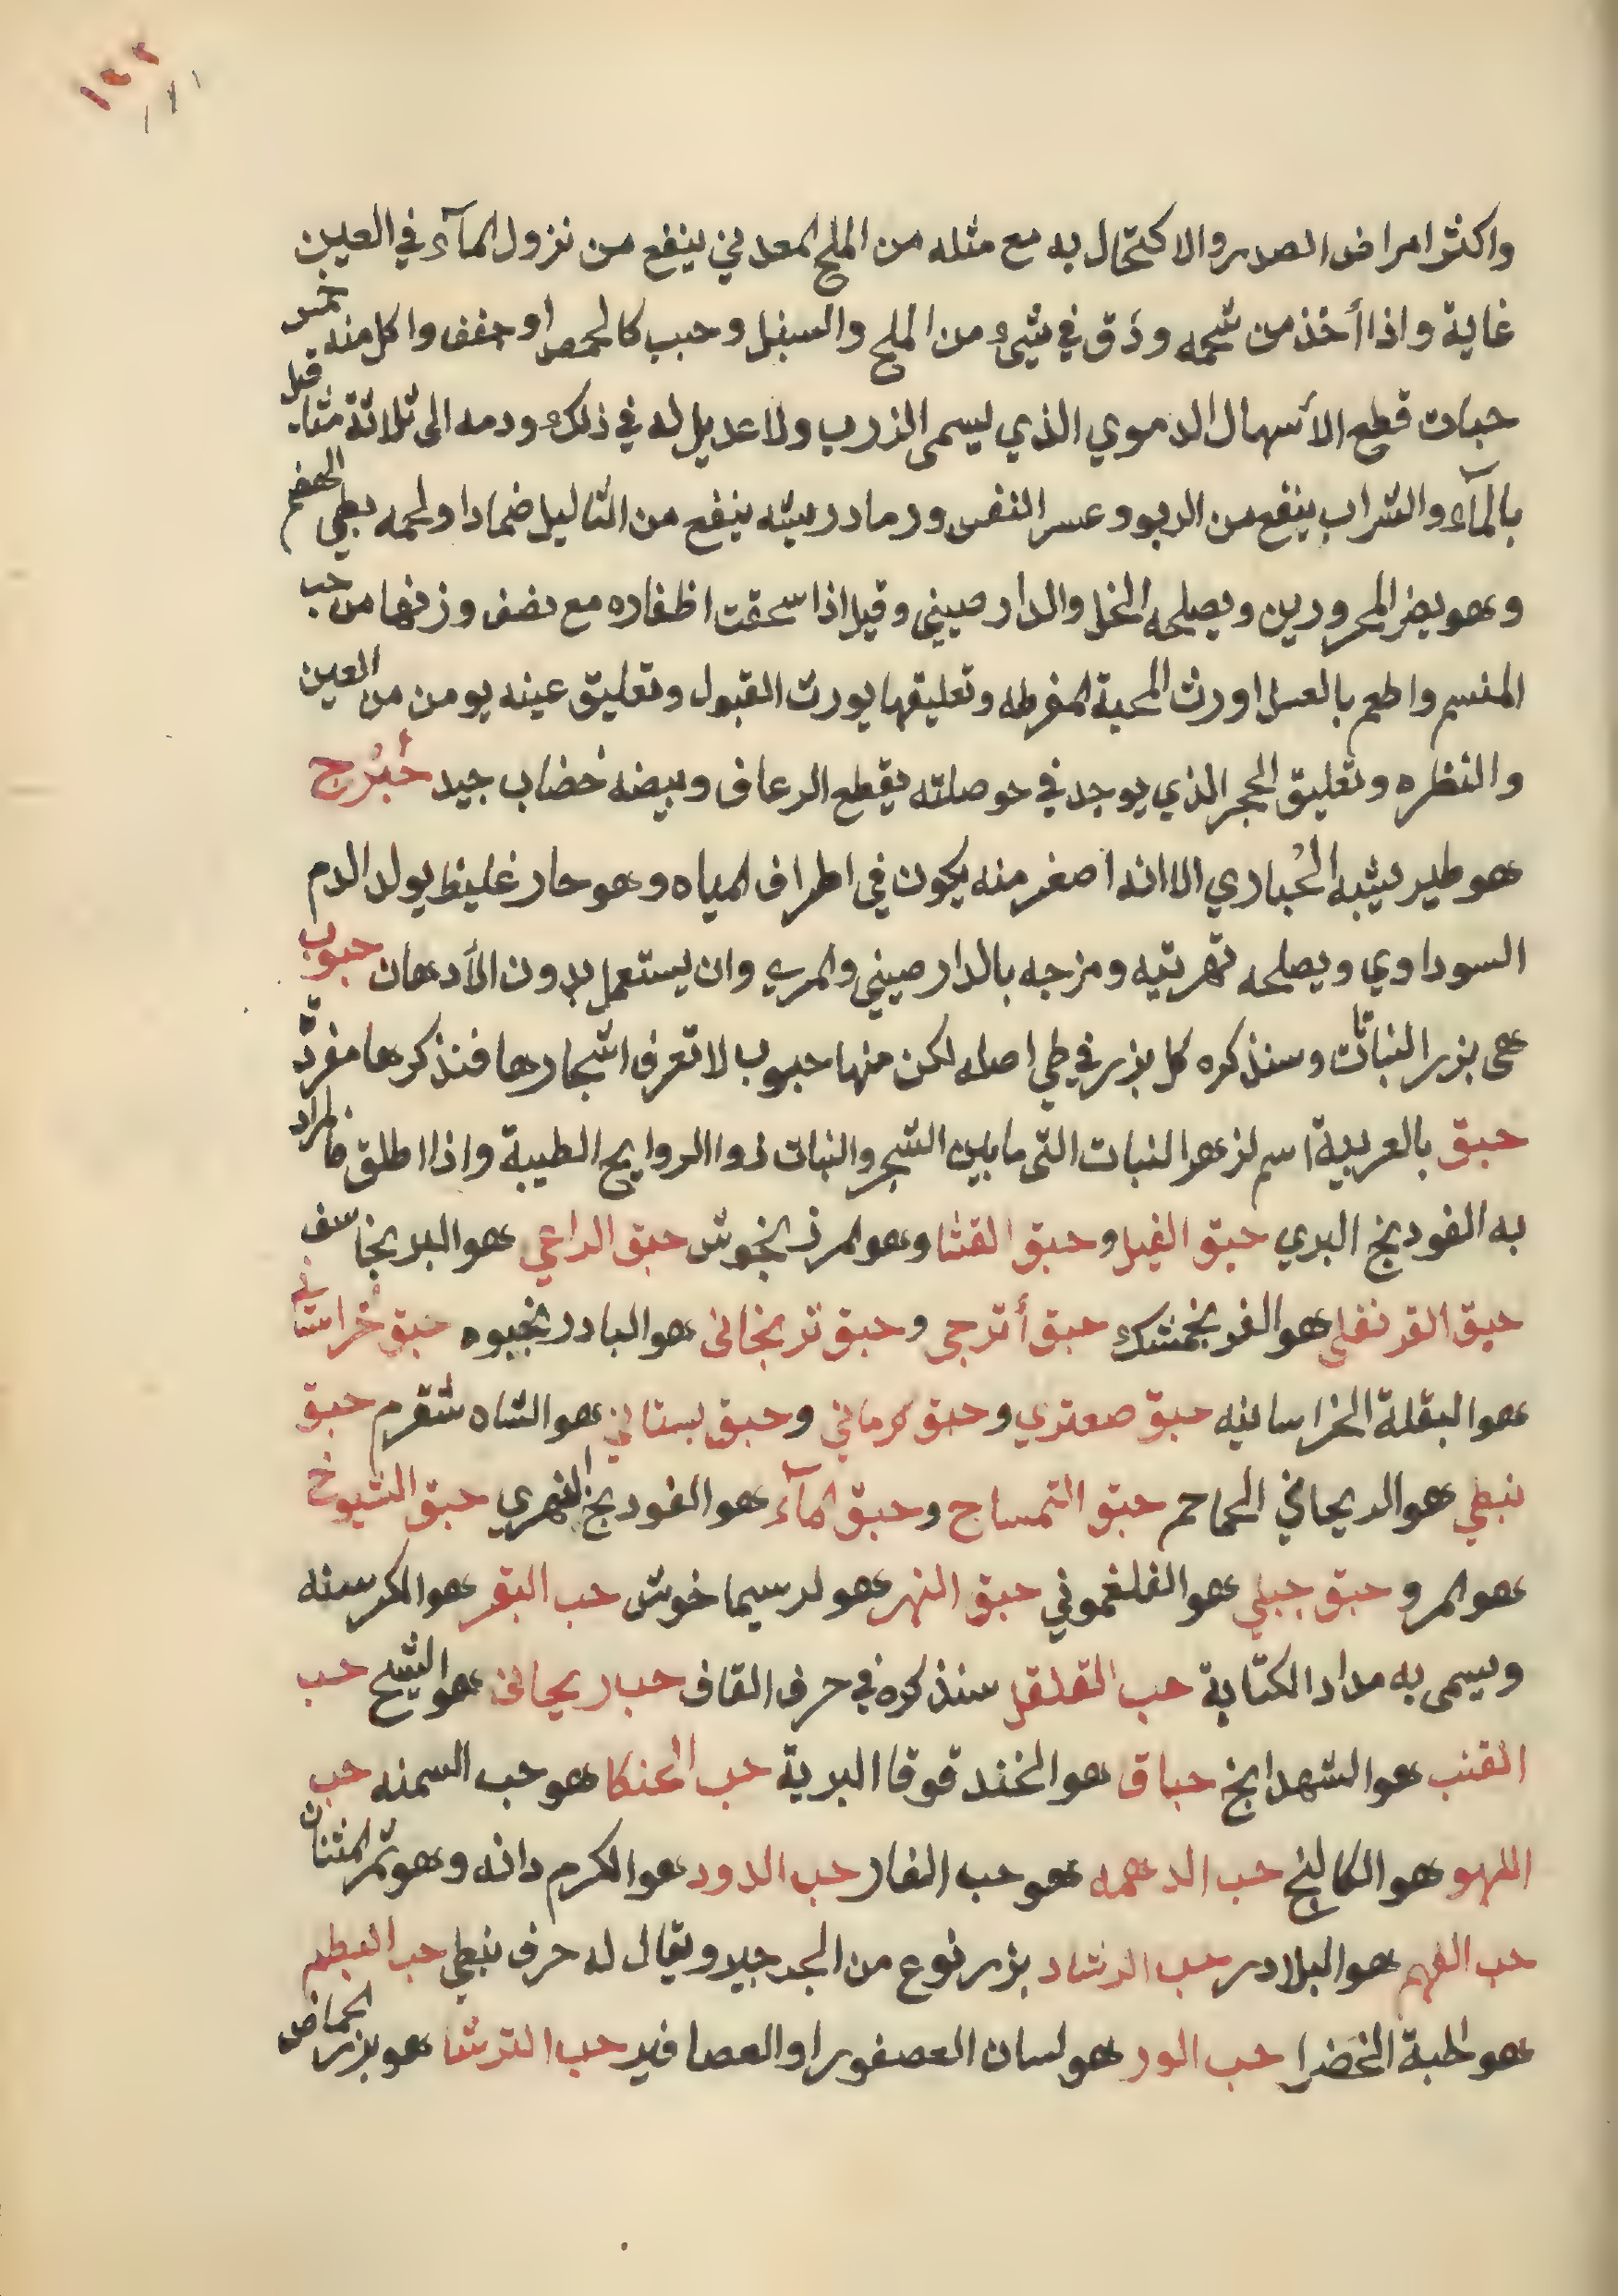 ١٤٢
واكثر امراض الصدر والاكتحال به مع مثله من الملح المعدني ينفع من نزول المآء في العين
غاية واذا أخذ من شحمه ودق في شيء من الملح والسنبل وحبب كالحمص او جفف واكل منه خمس
حبات قطع الأسهال الدموي الذي ليسمى الذرب ولا عديل له في ذلك ودمه الى ثلاثة مثاقيل
بالمآء والشراب ينفع من الربو وعسر النفس ورماد ريشه ينفع من الثاليل ضمادا ولحمه بطي الهضم
وهو يضر المحرورين ويصلحه الخل والدارصيني وقيل اذا سحقت اظفاره مع نصف وزنها من حب
المنسم واطعم بالعسل اورث المحبة المفرطه وتعليقها يورث القبول وتعليق عينه يومن من العين
والنظره وتعليق الحجر الذي يوجد في حوصلته يقطع الرعاف وبيضه خضاب جيد حُبْرُج
هو طير يشبه الحُبارى الا انه اصغر منه يكون في اطراف المياه وهو حار غليظ يولد الدم
السوداوي ويصلحه تهريته ومزجه بالدارصيني والمري وان يستعمل بدون الأدهان حبوب
هى بزر النباتات وسنذكره كل بزر في طي اصله لكن منها حبوب لا تعرف اشجارها فنذكرها مفردة
حبق بالعربية اسم لزهر النبات التى ما بين الشجر والنبات ذوا الروايح الطيبة واذا اطلق فالمراد
به الفودنج البري حبق الفيل وحبق القثا وهو المرزنجوش حبق الراعي هو البرنجاسف
حبق القرنفلي هو الفرنجمشك حبق أترجى وحبق ترنجانى هو البادرنجبوه حبق خُراساني
هو البقلة الخراسانيه حبق صعتري وحبق كرماني وحبق بستاني هو الشاه شقرم حبق
نبطي هو الريحاني الحماحم حبق التمساح وحبق المآء هو الفودنج النهري حبق الشيوخ
هو المرو حبق جبلي هو الفلغموني حبق النهر هو لرسيما خوش حب البقر هو الكرسنه
ويسمى به مداد الكتابة حب القلقل سنذكره في حرف القاف حب ريحانى هو الشيح حب
القنب هو الشهدانج حباق هو الخندقوقا البرية حب الحنكا هو حب السمنه حب
اللهو هو الكالنج حب الدهمه هو حب الغار حب الدود هو الكرم دانه وهو ثمر المثنان
حب الفهم هو البلادر حب الرشاد بزر نوع من الجرجير ويقال له حرف نبطي حب البطم
هو الحبة الخضرا حب الور هو لسان العصفور او العصافير حب الترشا هو بزر الحماض